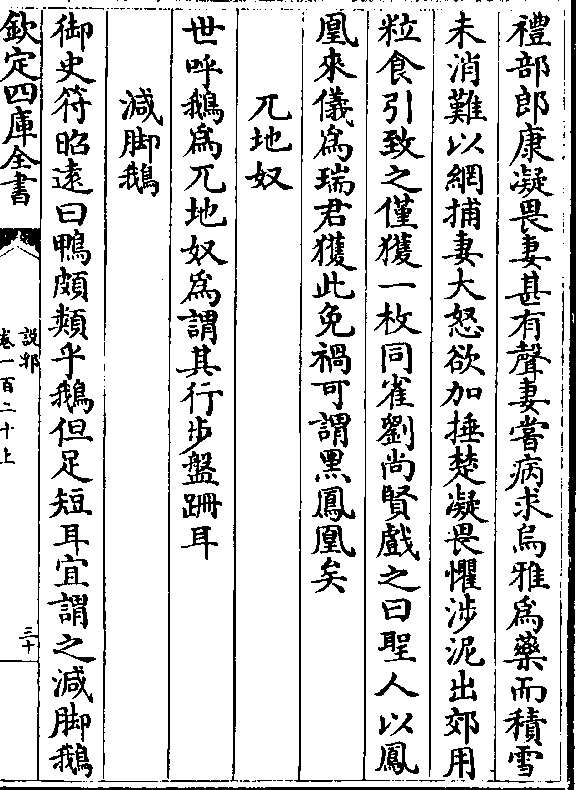 禮部郎康凝畏妻甚有聲妻嘗病求烏雅爲藥而積雪
未消難以網捕妻大怒欲加捶楚凝畏懼涉泥出郊用
粒食引致之僅獲一枚同雀劉尚賢戲之曰聖人以鳳
凰來儀爲瑞君獲此免禍可謂黑鳳凰矣
兀地奴
世呼鵝爲兀地奴爲謂其行步盤跚耳
減脚鵝
御史符昭遠曰鴨頗類乎鵝但足短耳宜謂之減脚鵝
欽定四庫全書
說郛
卷一百二十上
三十